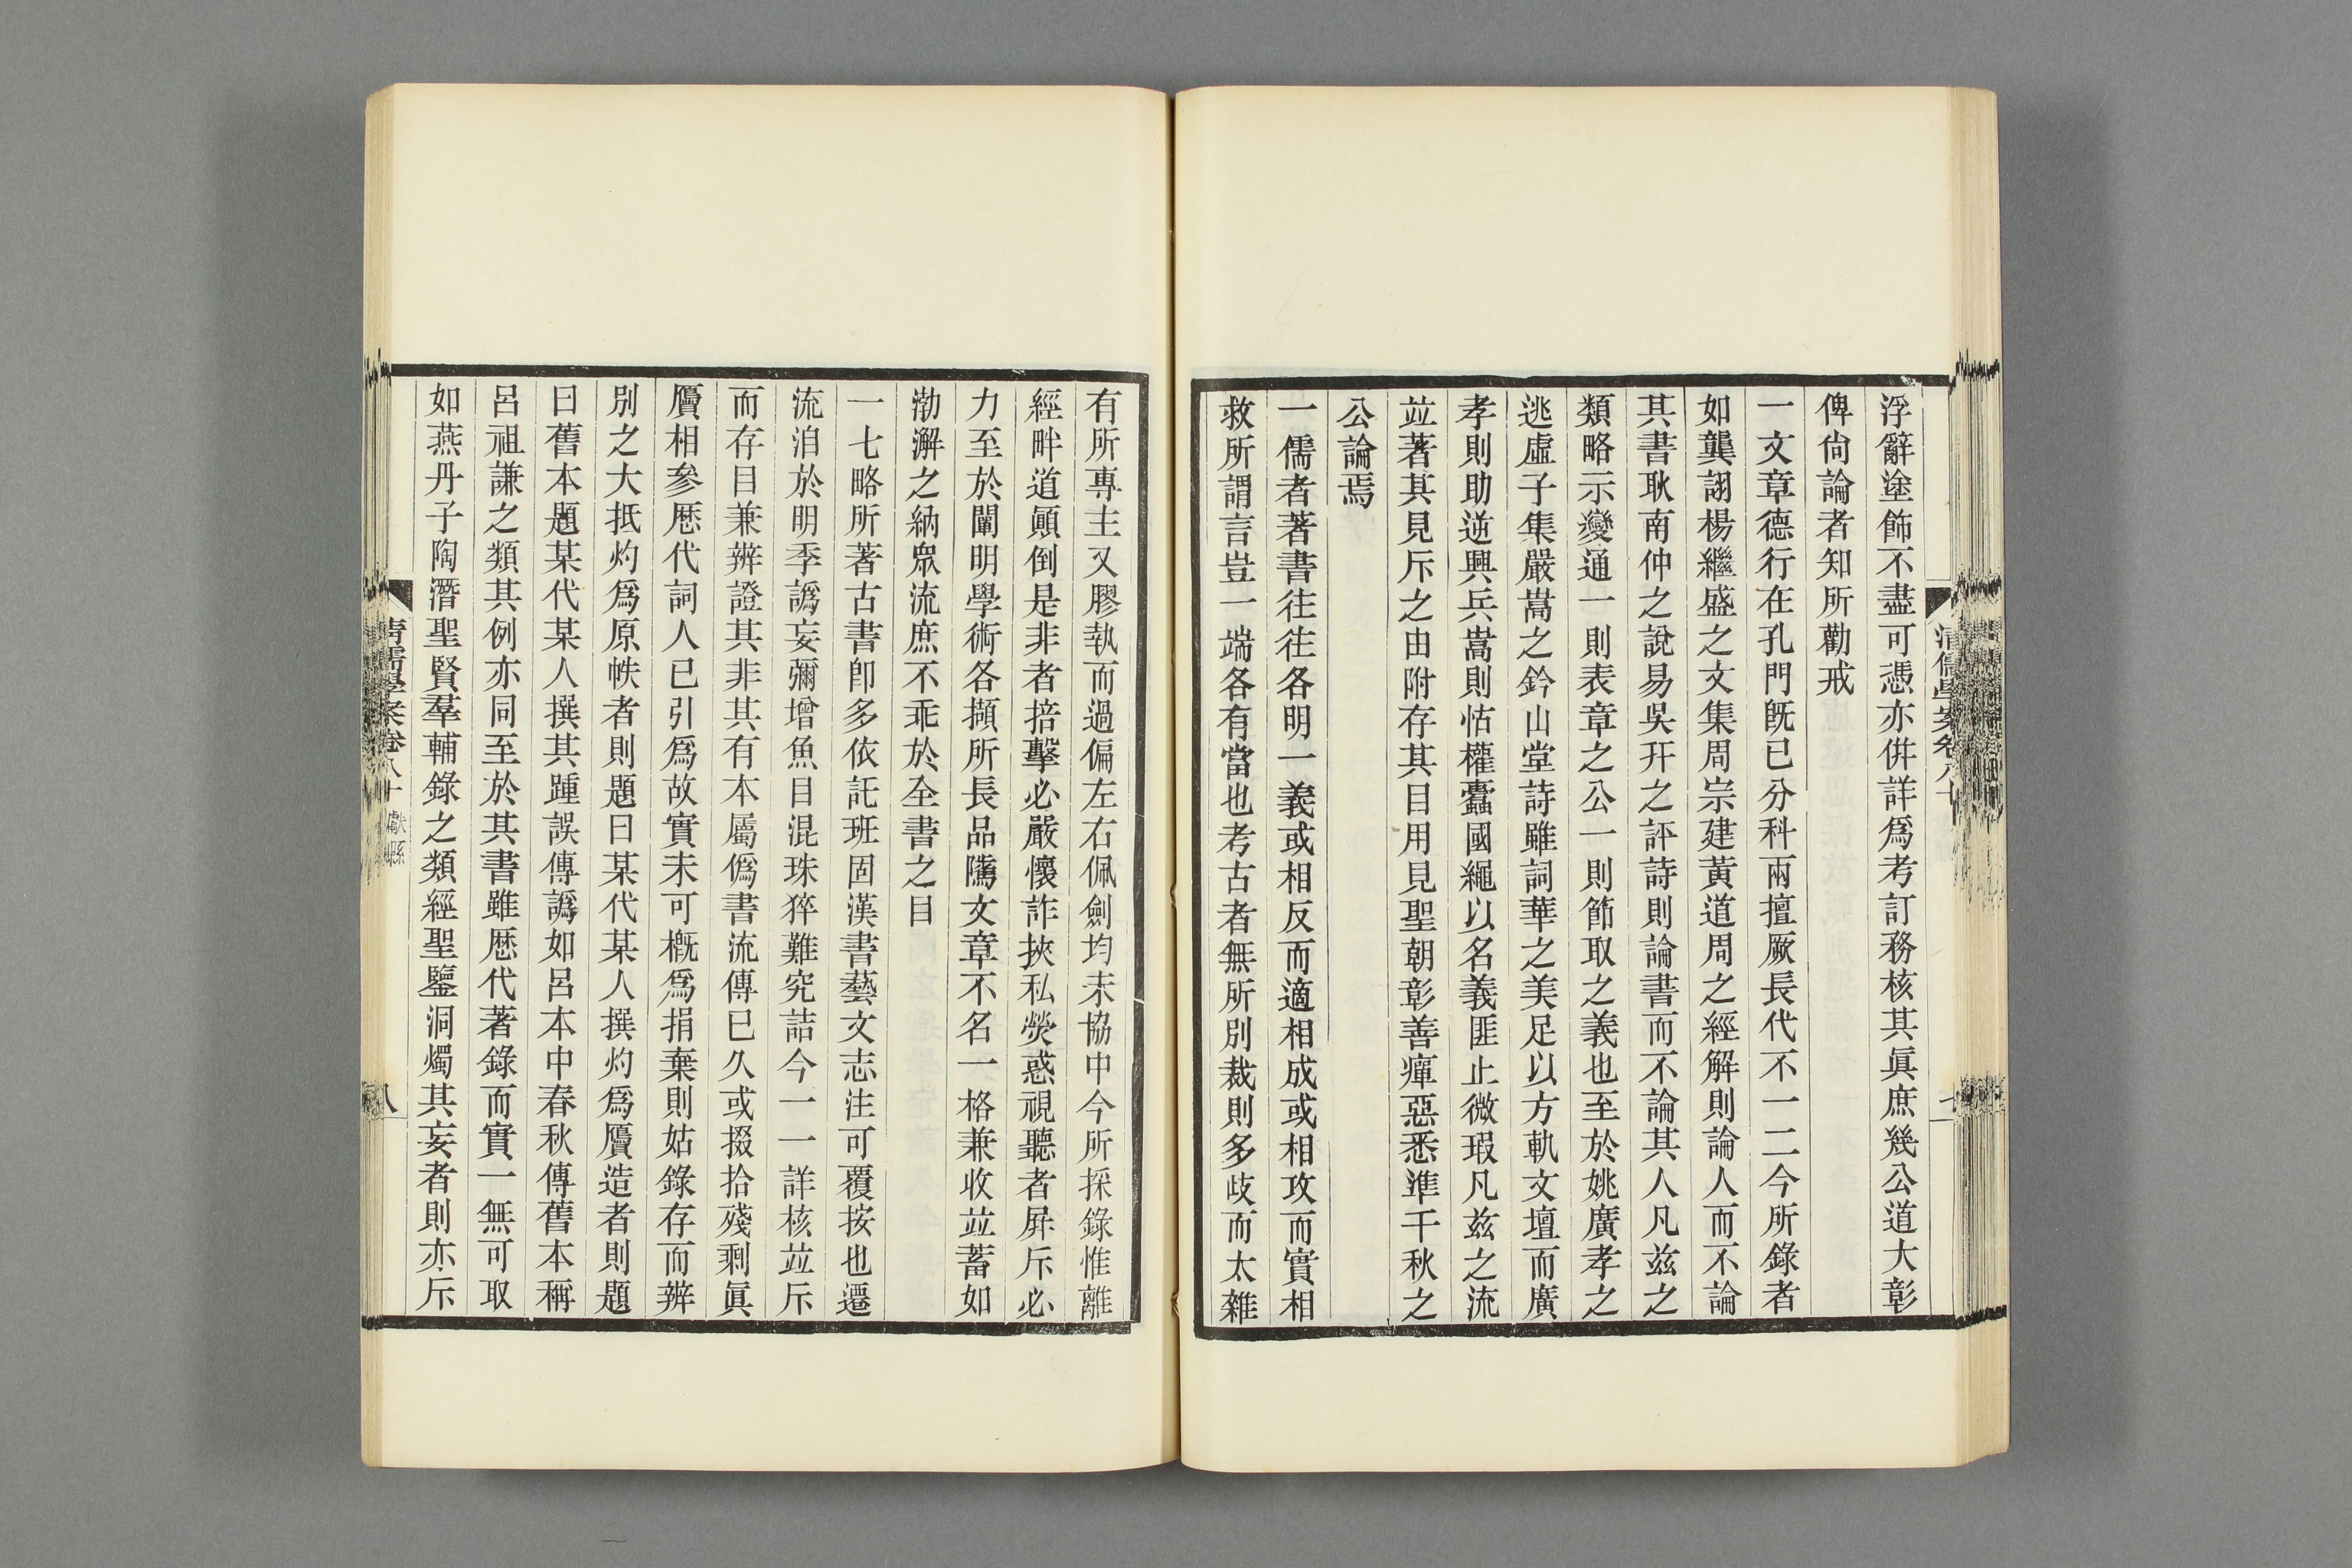 清儒學案卷八十
七
浮辭塗飾不盡可憑亦併詳爲考訂務核其眞庶幾公道大彰
俾尙論者知所勸戒
一文章德行在孔門旣已分科兩擅厥長代不一二今所錄者
如龔詡楊繼盛之文集周宗建黃道周之經解則論人而不論
其書耿南仲之說易吳幵之評詩則論書而不論其人凡兹之
類略示變通一則表章之公一則節取之義也至於姚廣孝之
逃虛子集嚴嵩之鈐山堂詩雖詞華之美足以方軌文壇而廣
孝則助逆興兵嵩則怙權蠹國繩以名義匪止微瑕凡兹之流
並著其見斥之由附存其目用見聖朝彰善癉惡悉準千秋之
公論焉
一儒者著書往往各明一義或相反而適相成或相攻而實相
救所謂言豈一端各有當也考古者無所別裁則多歧而太雜
有所專主又膠執而過偏左右佩劍均未協中今所採錄惟離
經畔道顚倒是非者掊擊必嚴懷詐挾私熒惑視聽者屛斥必
力至於闡明學術各擷所長品隲文章不名一格兼收並蓄如
渤澥之納衆流庶不乖於全書之目
一七略所著古書卽多依託班固漢書藝文志注可覆按也遷
流洎於明季譌妄彌增魚目混珠猝難究詰今一一詳核並斥
而存目兼辨證其非其有本屬僞書流傳已久或掇拾殘剩眞
贗相參歷代詞人已引爲故實未可槪爲捐棄則姑錄存而辨
別之大抵灼爲原帙者則題曰某代某人撰灼爲贗造者則題
曰舊本題某代某人撰其踵誤傳譌如呂本中春秋傳舊本稱
呂祖謙之類其例亦同至於其書雖歷代著錄而實一無可取
如燕丹子陶潛聖賢羣輔錄之類經聖鑒洞燭其妄者則亦斥
清儒學案卷八十 獻縣
八